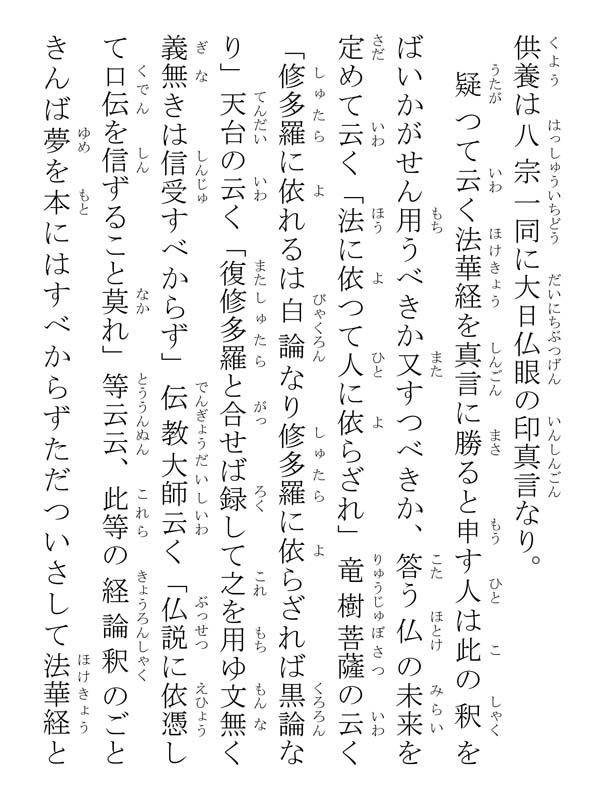 供養は八宗一同に大日仏眼の印真言なり。
疑つて云く法華経を真言に勝ると申す人は此の釈を
ばいかがせん用うべきか又すつべきか、答う仏の未来を
定めて云く「法に依つて人に依らざれ」竜樹菩薩の云く
「修多羅に依れるは白論なり修多羅に依らざれば黒論な
り」天台の云く「復修多羅と合せば録して之を用ゆ文無く
義無きは信受すべからず」伝教大師云く「仏説に依憑し
て口伝を信ずること莫れ」等云云、此等の経論釈のごと
きんば夢を本にはすべからずただついさして法華経と